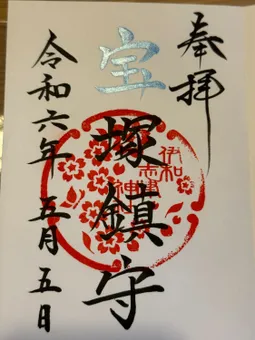 奉拝
宝塚鎮守
伊和志津神社
令和六年五月五日